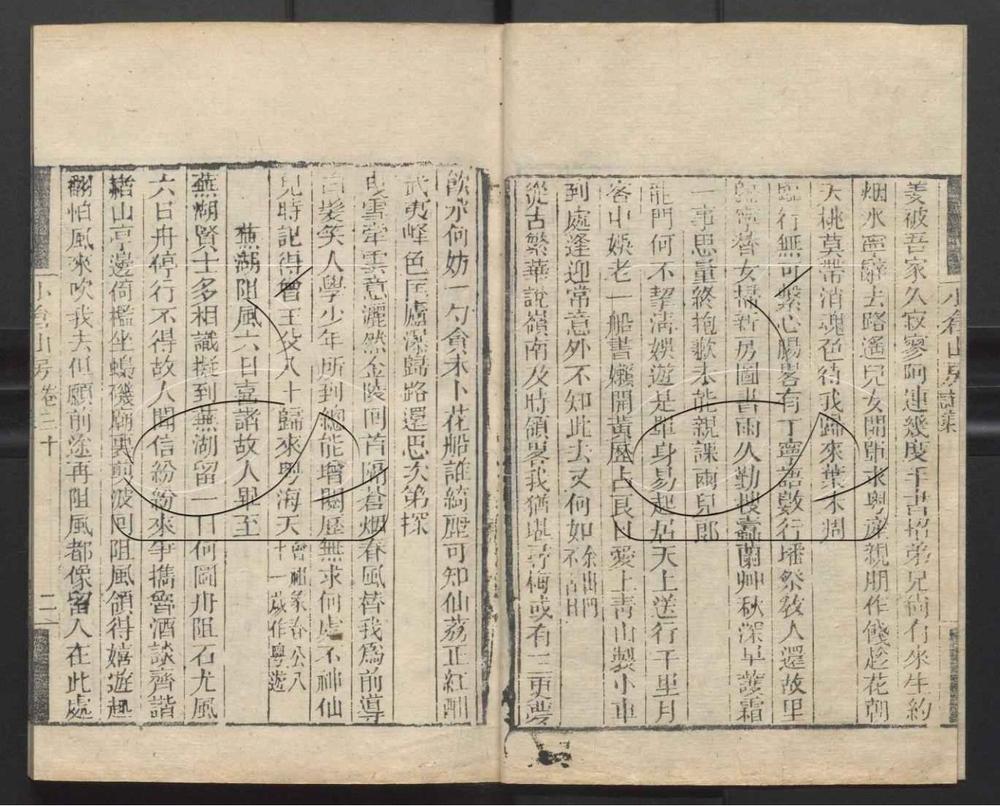 姜被吾家久寂寥阿連幾度千書招弟兄何有來生約
烟水寧辭去路遙兒女開單求粵產親朋作餞趁花朝
夭桃莫帶消魂色待我歸來葉未凋
臨行無可繫心腸畧有丁寧語數行墦祭教人還故里
歸寧替女掃新房圖書雨久勤搜蠹蘭艸秋深早護霜
一事思量終抱歉未能親課兩兒郎
龍門何不挈淸娛遊是單身易起居天上送行千里月
客中娛老一船書嬾開黃厯占良日愛上靑山製小車
到處逢迎常意外不知此去又何如余出門不占日
從古繁華說嶺南及時領畧我猶堪尋梅或有三更夢
小倉山房詩集
飲水何妨一勺貪未卜花船誰綺麗可知仙荔正紅酣
武夷峰色匡廬瀑歸路還思次第探
曳雪牽雲意灑然金陵回首隔蒼烟春風替我爲前導
白髪笑人學少年所到總能增閱歷無求何處不神仙
兒時記得曾王父八十歸來粵海天曾祖象春公八十一歲作粵遊
蕪湖阻風六日喜諸故人畢至
蕪湖賢士多相識擬到蕪湖留一日何圖舟阻石尤風
六日舟停行不得故人聞信紛紛來爭攜醇酒談齊諧
赭山亭邊倚檻坐蟂磯廟裏剪波回阻風領得嬉遊趣
翻怕風來吹我去但願前途再阻風都像留人在此處
小倉山房卷三十
二